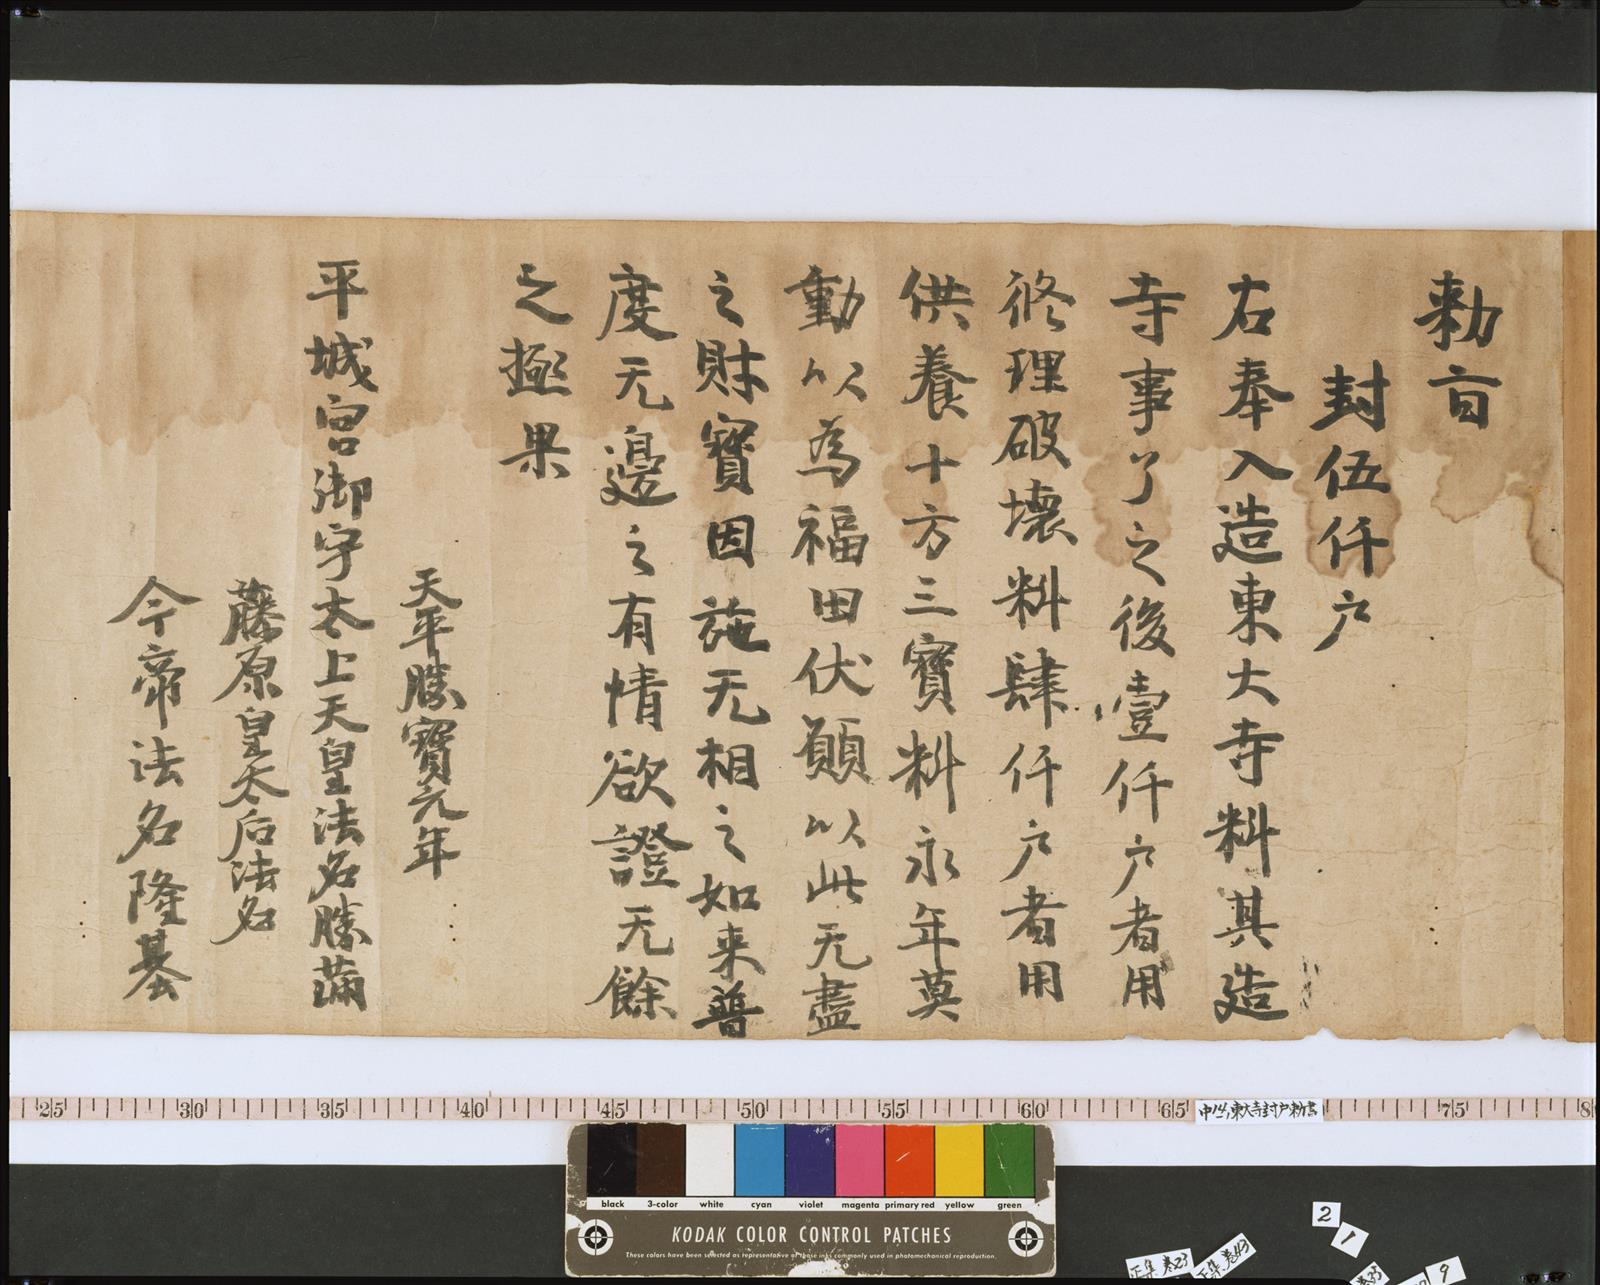 勅旨
封伍仟戸
右奉入造東大寺料其造
寺事了之後壹仟戸者用
修理破壊料肆仟戸者用
供養十方三寶料永年莫
動以為福田伏願以此无盡
之財寶因施无相之如来普
度无邊之有情欲證无餘
之極果
天平勝寶元年
平城宮御宇太上天皇法名勝満
藤原皇太后法名
今帝法名隆基
25 30 35 40 45 50 55 60 65 75 8
東大寺封戸勅書
black 3-color white cyan violet magenta primary red yellow green
KODAK COLOR CONTROL PATCHES
These colors have been selected as representative of those inks commonly used in photomechanical reproduction.
2
1
正集 巻23
正集 巻43
巻35
9